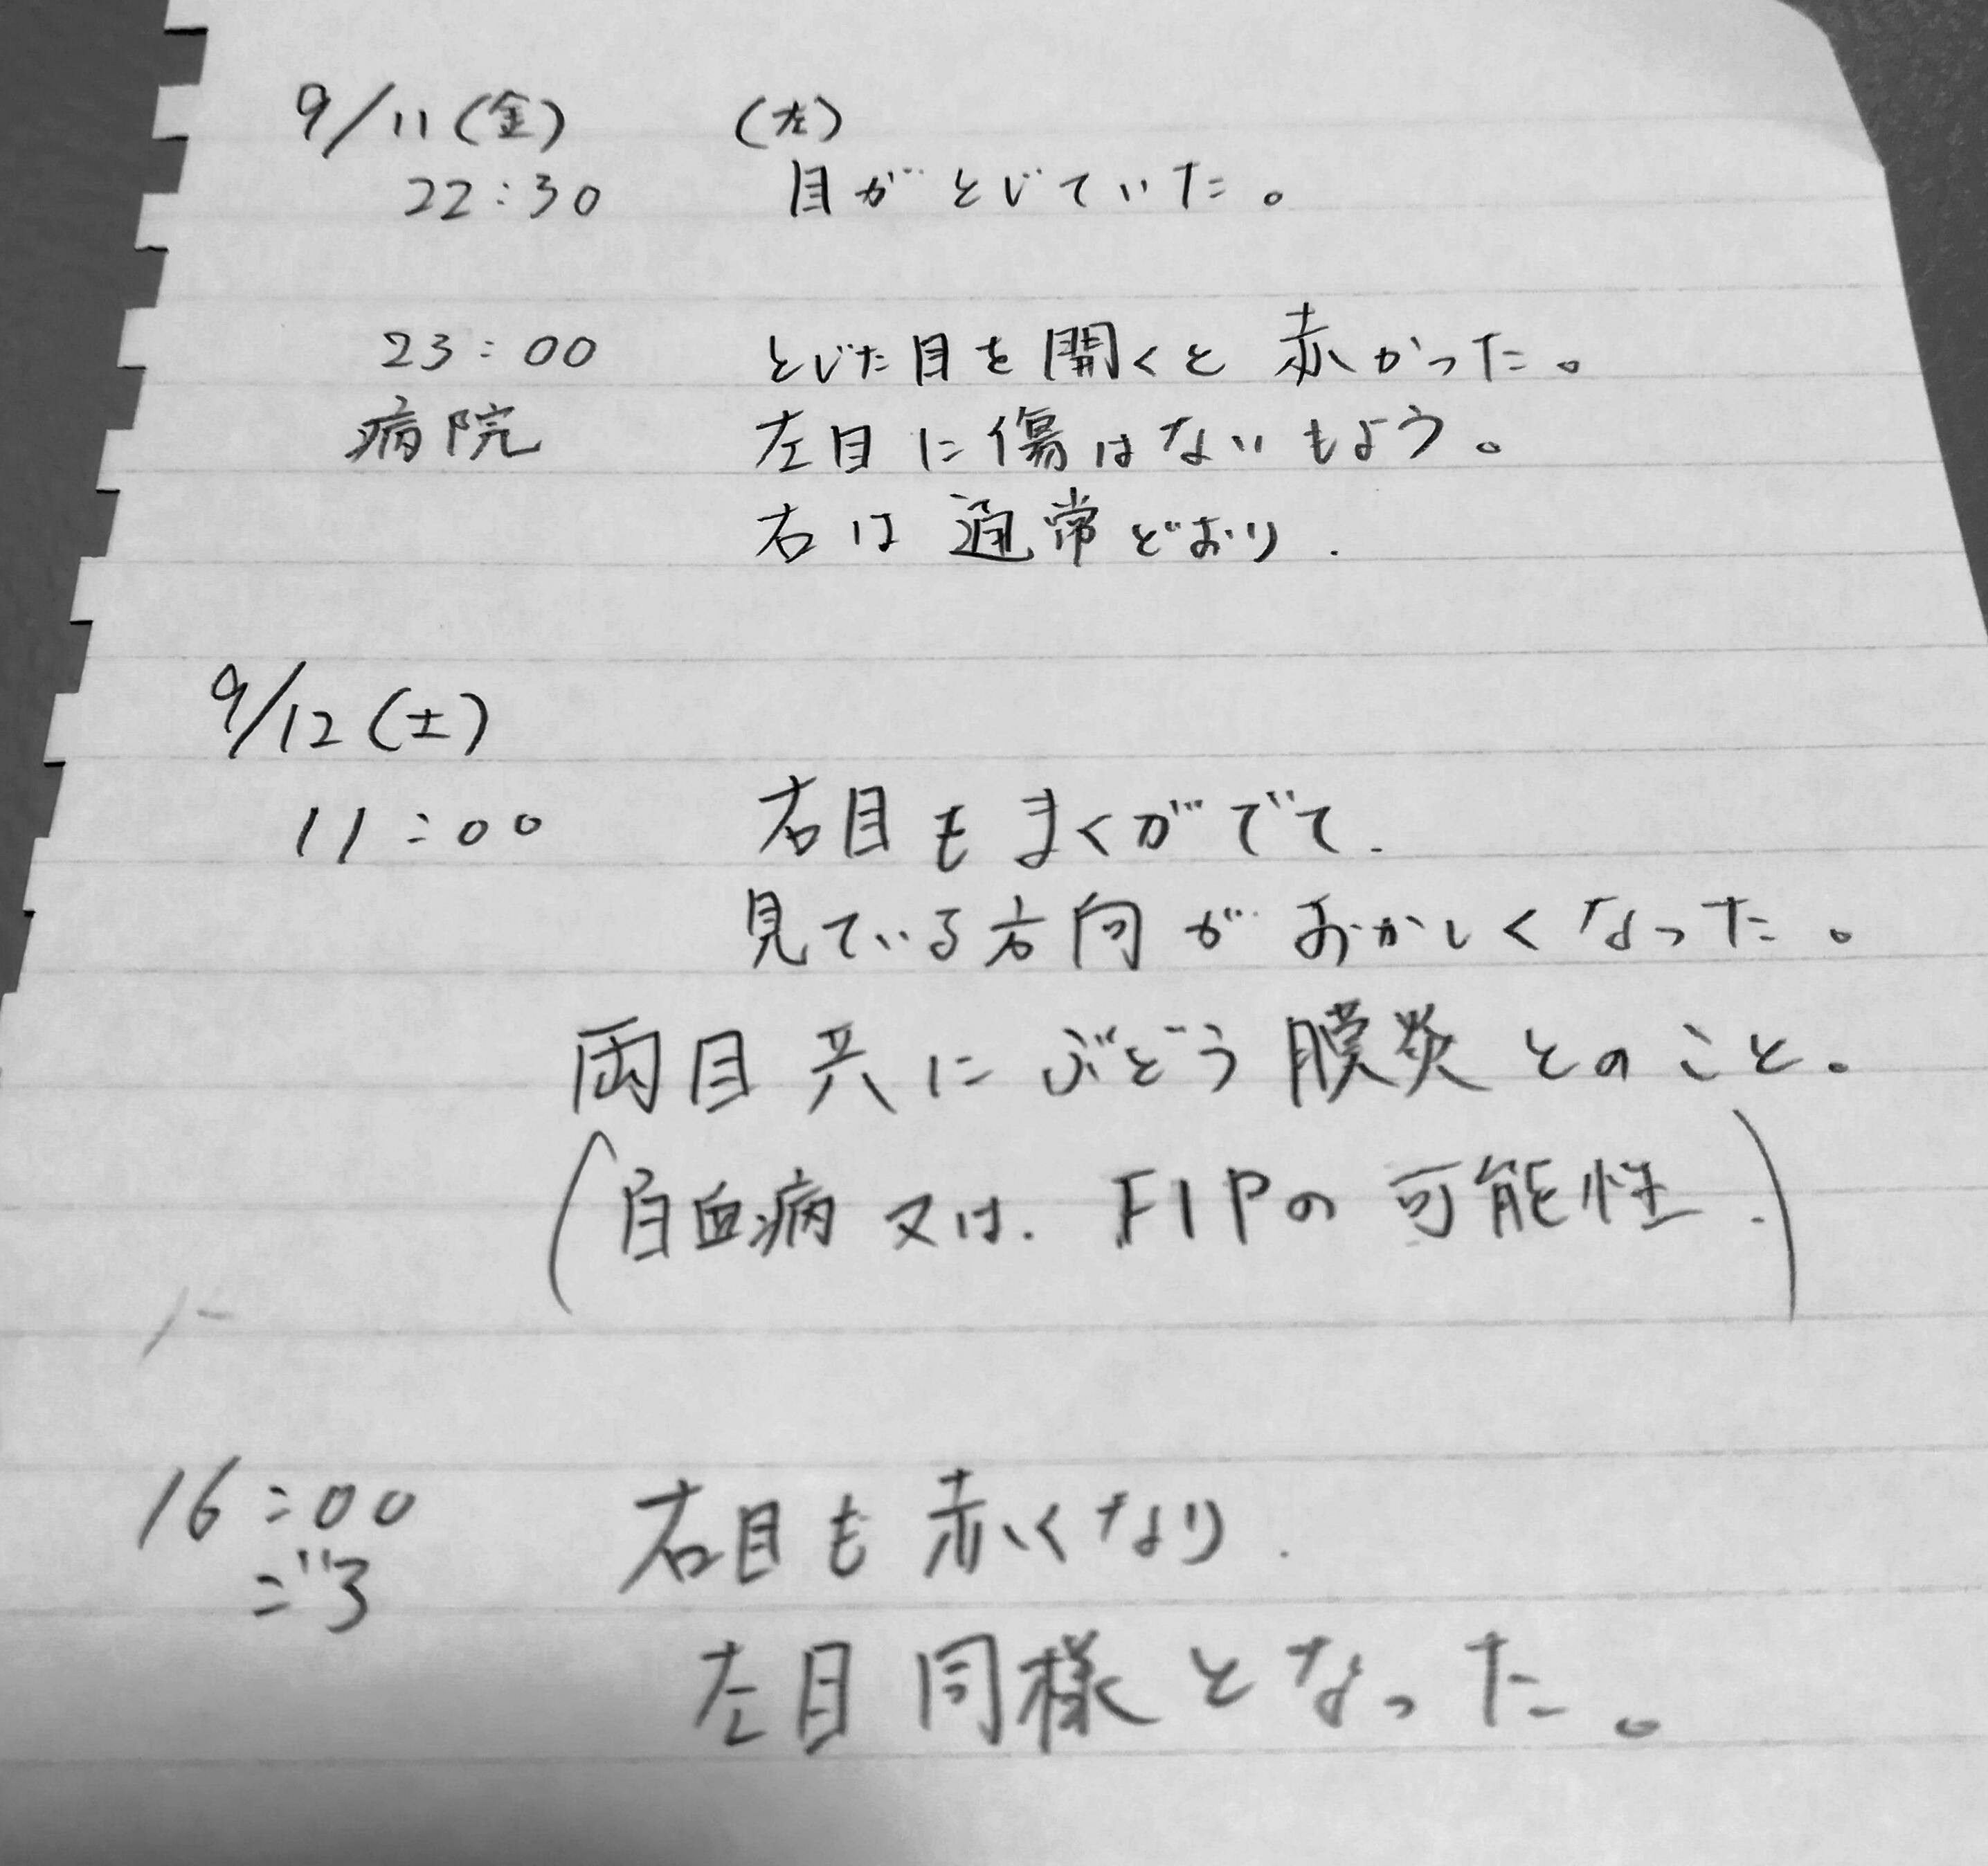 9/11(金) (左)
22:30 目がとじていた。
23:00 とじた目を開くと赤かった。
病院 左目に傷はないもよう。
右は通常どおり.
9/12(土)
11:00 右目もまくがでて.
見ている方向がおかしくなった。
両目共にぶどう膜炎とのこと。
(白血病又は.FIPの可能性.)
16:00 右目も赤くなり.
ごろ
左目同様となった。